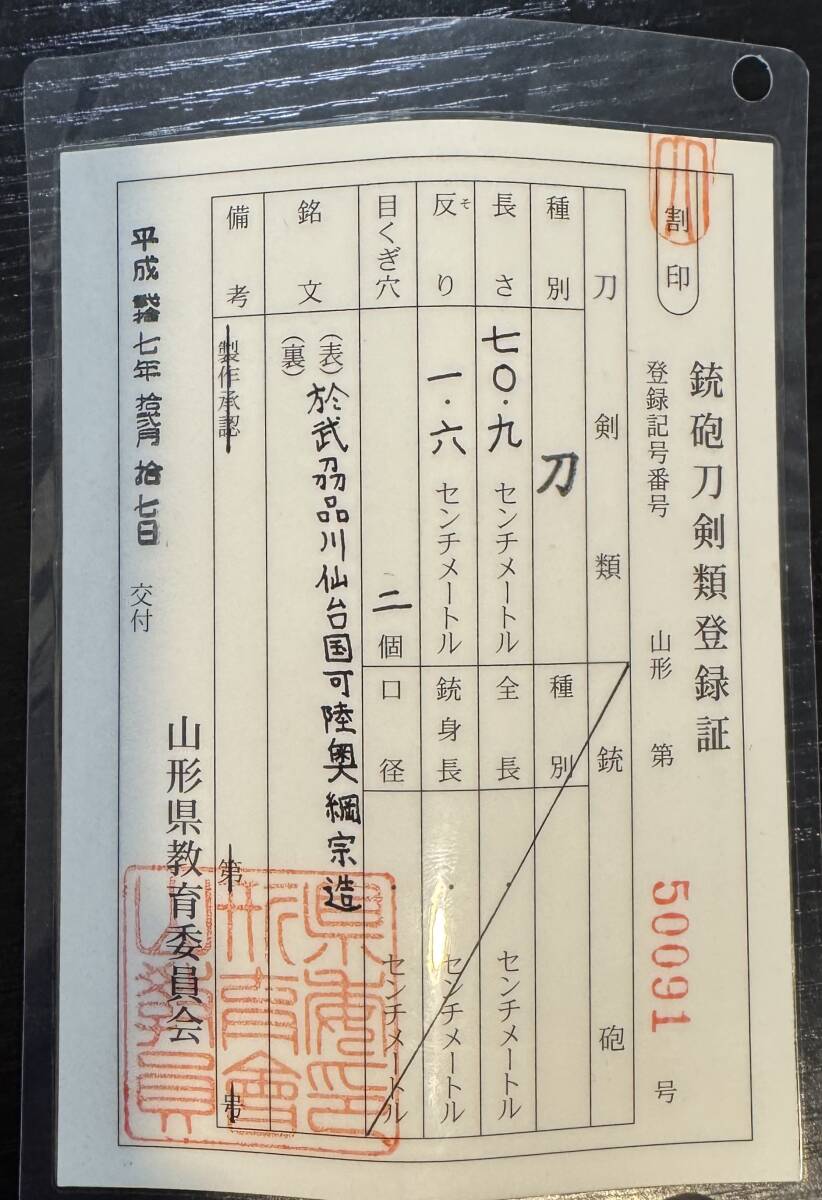 銃砲刀剣類登録証
割印
登録記号番号 山形 第 50091 号
刀剣類
種別 刀
長さ 七〇・九 センチメートル
反り そ 一・六 センチメートル
目くぎ穴 二 個
銃砲
種別
全長 ・ センチメートル
銃身長 ・ センチメートル
口径 ・ センチメートル
銘文
(表) 於武刕品川仙台国可陸奥綱宗造
(裏)
備考
製作承認 第 号
平成弐拾七年拾弐月拾七日 交付
山形県教育委員会